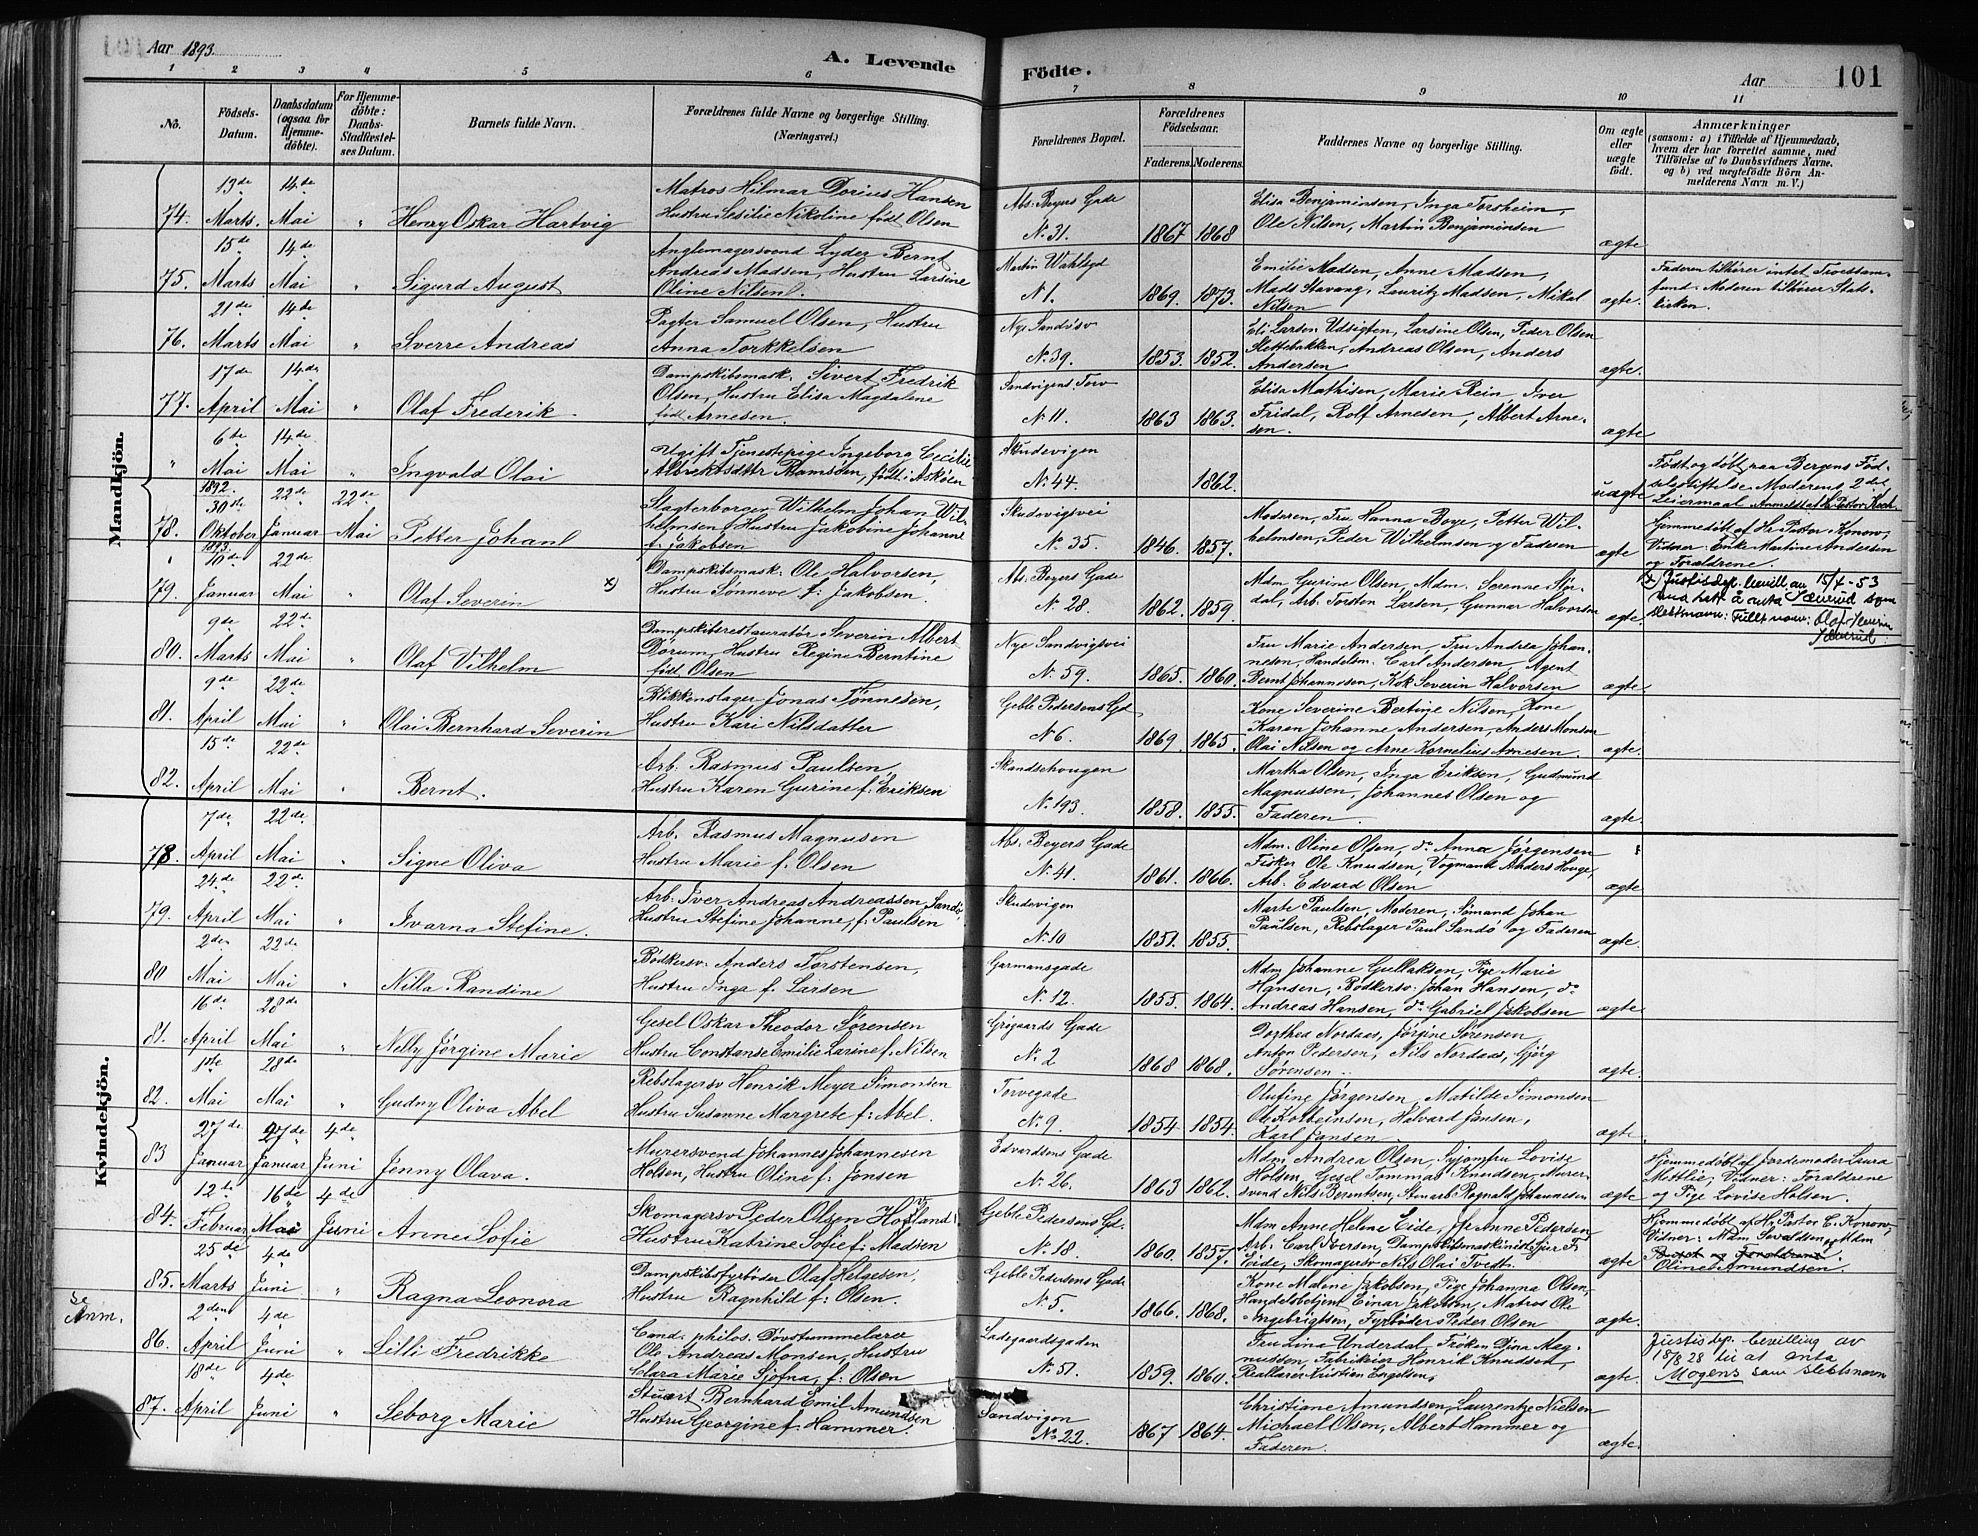 Aar 1893.
A. Levende Födte.
Aar
101
1 2 3 4 5 6 7 8 9 10 11
No.
Födsels-Datum.
Daabsdatum (ogsaa for Hjemme-döbte).
For Hjemme-döbte: Daabs-Stadfæstel-ses Datum.
Barnets fulde Navn.
Forældrenes fulde Navne og borgerlige Stilling. (Næringsvei.)
Forældrenes Bopæl.
Forældrenes Födselsaar.
Faderens. Moderens.
Faddernes Navne og borgerlig Stilling.
Om ægte eller uægte födt.
Anmærkninger
(saasom: a) i Tilfælde af Hjemmedaab,
hvem der har forrettet samme, med
Tilföielse af to Daabsvidners Navne.
og b) ved uægtefödte Börn An-
melderens Navn m. V.)
Mandkjön.
74. 13de Marts. 14de Mai " Henry Oskar Hartvig
Matros Hilmar Dorius Hansen
Hustru Sesilie Nikoline født Olsen
Abs. Beyers Gade
No 31. 1867 1868
Elisa Benjaminsen, Inga Torsheim,
Ole Nilsen, Martin Benjaminsen
ægte
75. 15de Marts 14de Mai " Sigurd August
Anglemagersvend Lyder Bernt
Andreas Madsen, Hustru Larsine
Oline Nilsen.
Martin Wahlsgd
No 1. 1869. 1873.
Emilie Madsen, Anne Madsen,
Mads Stavang, Lauritz Madsen, Mikal
Nilsen
ægte.
Faderen tilhører intet Troessam-
fund. Moderen tilhører Stats-
kirken.
76. 21de Marts 14de Mai " Sverre Andreas
Pagter Samuel Olsen, Hustru
Anna Torkkelsen
Nye Sandvigsv
No 39. 1853. 1852.
Eli Larsen Udsigten, Larsine Olsen, Peder Olsen
Slettebakken, Andreas Olsen, Anders
Andersen
ægte.
77. 17de April 14de Mai " Olaf Frederik.
Dampskibsmask. Sivert Fredrik
Olsen, Hustru Elisa Magdalene
født Arnesen.
Sandvigens Torv
No 11. 1863 1863.
Elisa Mathisen, Marie Rein, Iver
Fridal, Rolf Arnesen, Albert Arne-
sen.
ægte
" 6te Mai 14de Mai " Ingvald Olai
Ugift Tjenestepige Ingeborg Cecilie
Albrektsdttr Ramsøen, født i Askøen
Skudevigen
No 44. 1862.
uægte
Født og døbt paa Bergens Fød-
selsstiftelse. Moderens 2det
Leiermaal. Anmeldt af Hr Pastor Koch
78. 1892. 30te Oktober 22de Januar 22de Mai Petter Johan
Slagterborger Wilhelm Johan Wil-
helmsen & Hustru Jakobine Johanne
f. Jakobsen
Skudevigsvei
No 35. 1846. 1857.
Moderen, Fru Hanna Boye, Petter Wil-
helmsen, Peder Wilhelmsen og Faderen
ægte
Hjemmedøbt af Hr Pastor Konow,
Vidner: Enke Martine Andersen
og Forældrene.
79. 1893. 10de Januar 22de Mai " Olaf Severin x)
Dampskibsmask. Ole Halvorsen,
Hustru Sønneve f: Jakobsen.
Abs. Beyers Gade
No 28. 1862. 1859.
Mdm. Gurine Olsen, Mdm. Serense Stør-
dal, Arb. Torsten Larsen, Gunnar Halvorsen
ægte.
x) Justisdep. bevill av 15/4-53
slektsnavn: Fullt navn: Olaf
80. 9de Marts 22de Mai " Olaf Vilhelm
Dampskibsrestauratør Severin Albert
Dørum, Hustru Regine Berntine
født Olsen
Nye Sandvigsvei
No 59. 1865. 1860.
Fru Marie Andersen, Fru Andrea Johan-
nesen, Handelsm. Carl Andersen, Agent
Bernt Johannesen, Kok Severin Halvorsen
ægte.
81. 9de April 22de Mai " Olai Bernhard Severin
Blikkenslager Jonas Tønnesen,
Hustru Kari Nilsdatter
Geble Pedersens Gd
No 6. 1869. 1865.
Kone Severine Bertine Nilsen, Kone
Karen Johanne Andersen, Anders Monsen
Olai Nilsen og Arne Kornelius Arnesen.
ægte.
82. 15de April 22de Mai " Bernt.
Arb. Rasmus Paulsen
Hustru Karen Gurine f: Eriksen
Skandsehougen
No 193. 1858. 1855.
Martha Olsen, Inga Eriksen, Gudmund
Magnussen, Johannes Olsen og
Faderen
ægte.
Kvindekjön.
78. 7de April 22de Mai " Signe Oliva
Arb. Rasmus Magnusen
Hustru Marie f: Olsen
Abs. Beyers Gade
No 41. 1861. 1866.
Mdm. Oline Olsen, do Anna Jørgensen
Fisker Ole Knudsen, Vogmand Anders Houge,
Arb. Edvard Olsen
ægte
79. 24de April 22de Mai " Ivarna Stefine.
Arb. Iver Andreas Andreassen Sandø,
Hustru Stefine Johanne, f: Paulsen
Skudevigen
No 10 1851. 1855.
Marte Paulsen, Moderen, Sømand Johan
Paulsen, Rebslager Paul Sandø og Faderen
ægte.
80 2den Mai 22de Mai " Nilla Randine
Bødkersv. Anders Torstensen,
Hustru Inga f. Larsen
Garmansgade
No 12. 1855. 1864.
Mdm Johanne Gullaksen, Pige Marie
Hansen, Bødkersv. Johan Hansen, do
Andreas Hansen, do Gabriel Jakobsen
ægte.
81. 16de April 28de Mai " Nelly Jørgine Marie
Gesel Oskar Theodor Sørensen
Hustru Constanse Emilie Larine f: Nilsen
Grigaards Gade
No 2 1868 1868.
Dorthea Nordaas, Jørgine Sørensen
Anton Pedersen, Nils Nordaas, Gjørg
Sørensen.
ægte.
82. 1ste Mai 28de Mai " Gudny Oliva Abel
Rebslagersv Henrik Meyer Simonsen
Hustru Susanne Margrete f: Abel.
Torvegade
No 9. 1854 1854.
Olufine Jørgensen, Matilde Simonsen
Ole Kolbeinsen, Halvard Jansen,
Karl Jansen
ægte.
83 27de Januar 27de Januar 4de Juni Jenny Olava.
Murersvend Johannes Johannesen
Holsen, Hustru Oline f: Jonsen
Edvardsens Gade
No 26. 1863 1862.
Mdm Andrea Olsen, Syjomfru Lovise
Holsen, Gesel Tommas Knudsen, Murer-
svend Nils Berentsen, Stenarb. Ragnald Johannesen
ægte
Hjemmedøbt af Jordemoder Laura
Mettlie, Vidner: Forældrene
og Pige Lovise Holsen.
84. 12te Februar 16de Mai 4de Juni Anne Sofie
Skomagersv Peder Olsen Hovland
Hustru Katrine Sofie f: Madsen
Geble Pedersens Gd.
No 18. 1860. 1857.
Mdm Anne Helene Eide, Fr Anne Pedersen
Arb. Carl Iversen, Dampskibsmaskinist Sjur T
Eide, Skomagersv Nils Olai Tvedt.
ægte
Hjemmedøbt af Hr Pastor E. Konow,
Vidner: Mdm Sevaldsen og Mdm
Oline Amundsen.
85. 25de Marts 4de Juni " Ragna Leonora
Dampskibsfyrbøder Olaf Helgesen,
Hustru Ragnhild f: Olsen.
Geble Pedersens Gade
No 5. 1866. 1868.
Kone Malene Jakobsen, Pige Johanna Olsen,
Handelsbetjent Einar Jakobsen, Matros Ole
Ingebrigtsen, Fyrbøder Peder Olsen
ægte.
Se Anm.
86. 2den April 4de Juni " Lilli Fredrikke
Cand. philos. Døvstummelærer
Ole Andreas Monsen, Hustru
Clara Marie Sjofna, f: Olsen
Ladegaardsgaden
No 51. 1859. 1860.
Fru Lina Underdal, Frøken Dina Mag-
nussen, Fabrikeier Henrik Knudsen,
Reallærer Kristian Engelsen,
ægte.
Justisdep. bevilling av
18/8 28 til at anta
Mogens som slektsnavn
87. 18de April 4de Juni " Seborg Marie
Stuert Bernhard Emil Amundsen
Hustru Georgine f: Hammer.
Sandvigen
No 22. 1867 1864.
Christiane Amundsen, Laurentze Nielsen
Michael Olsen, Albert Hammer og
Faderen.
ægte.